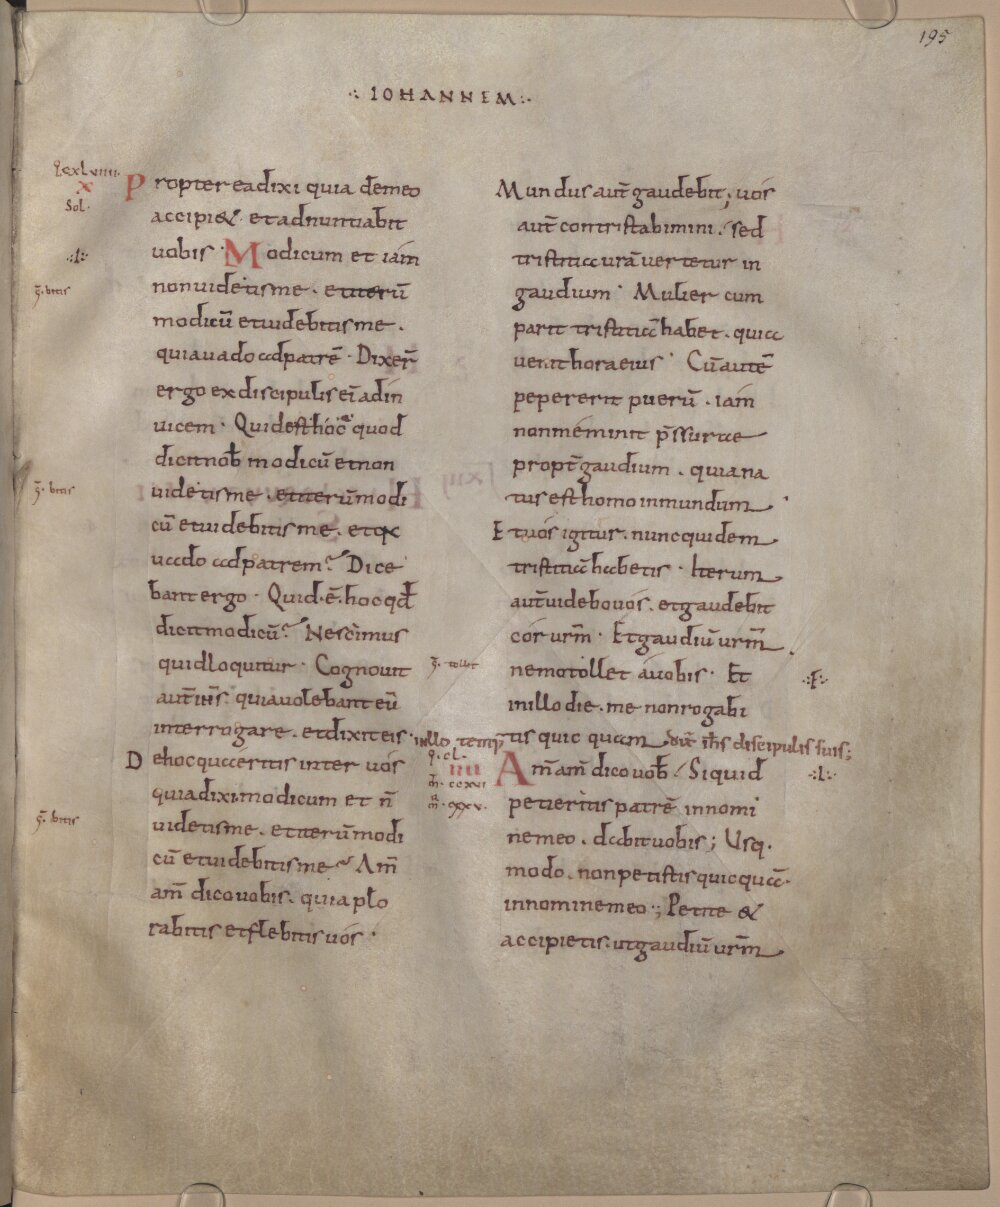 195
.: IOHANNEM :.
Propterea dixi quia demeo
accipi&. et adnuntiabit
uobis. Modicum et iam
non uidetis me. et iterū
modicū et uidebitis me.
quia uado ad patrē. Dixer̄
ergo ex discipulis ei' ad in
uicem. Quid est hoc quod
dicit nob̄ modicū et non
uidetis me. et iterū modi
cū et uidebitis me. et q
uado ad patrem? Dice
bant ergo. Quid. ē. hoc qd̄
dicit modicū? Nescimus
quid loquitur. Cognouit
aut̄ ih̄s. quia uolebant eū
interrogare. et dixit eis.
De hoc quaeritis inter uós
quia dixi modicum et n̄
uidetis me. et iterū modi
cū et uidebitis me. Am̄
am̄ dico uobis. quia plo
rabitis et flebitis uós.
q. cxlviiii.
x
Sol.
.:l:.
q̄. bitis
q̄. bitis
q̄. bitis
Mundus aut̄ gaudebit; uós
aut̄ contristabimini. sed
tristitia urā uertetur in
gaudium. Mulier cum
parit tristitiā habet. quia
uenit hora eius. Cū autē
pepererit puerū. iam
non meminit p̄ssurae
propt̄ gaudium. quia na
tus est homo in mundum
Et uós igitur. nunc quidem
tristitiā habetis. Iterum
aut̄ uidebo uós. et gaudebit
cor ur̄m. Et gaudiū ur̄m
nemo tollet á uobis. Et
in illo die. me non rogabi
tis quic quam
q̄. tollit
.:F:.
in illo temp̄
dix̄ ih̄s discipulis suis;
q. cl.
iiii
m̄. ccxvi
m̄. cxxv.
.:l:.
Am̄ am̄ dico uob̄. Siquid
petieritis patrē in nomi
ne meo. dabit uobis; Usq.
modo. non petistis quic quā.
in nomine meo; Petite &
accipietis. ut gaudiū ur̄m